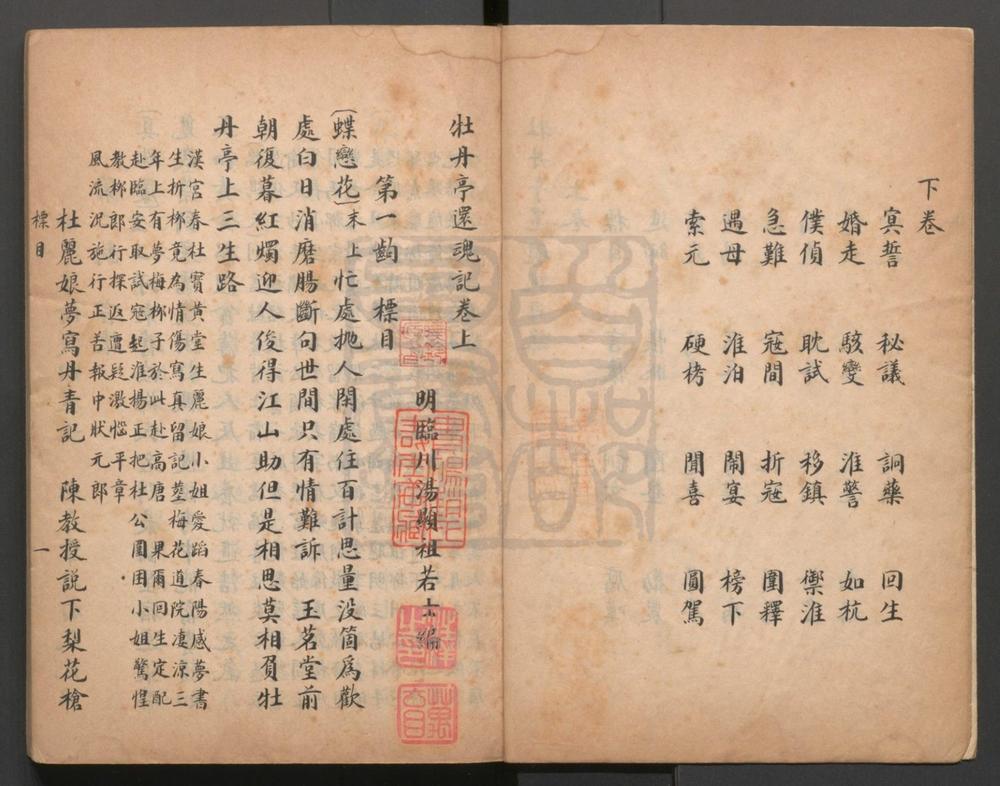 下卷
冥誓 秘議 詗藥 回生
婚走 駭變 淮警 如杭
僕偵 耽試 移鎮 禦淮
急難 寇間 折寇 圍釋
遇母 淮泊 鬧宴 榜下
索元 硬栲 聞喜 圓駕
牡丹亭還魂記卷上
明臨川湯顯祖若士編
第一齣 標目
〔蝶戀花〕末上忙處拋人閑處住百計思量没箇爲歡
處白日消磨腸斷句世間只有情難訴 玉茗堂前
朝復暮紅燭迎人俊得江山助但是相思莫相負牡
丹亭上三生路
漢宮春杜寶黃堂生麗娘小姐愛蹈春陽感夢書
生折柳竟為情傷寫真留記塟梅花道院凄涼三
年上有夢梅柳子於此赴高唐果爾回生定配
赴臨安取試寇起淮揚正把杜公圍困小姐驚惶
教柳郎行探返遭疑激惱平章
風流況施行正苦報中狀元郎
杜麗娘夢寫丹青記 陳教授説下梨花槍
標目 一